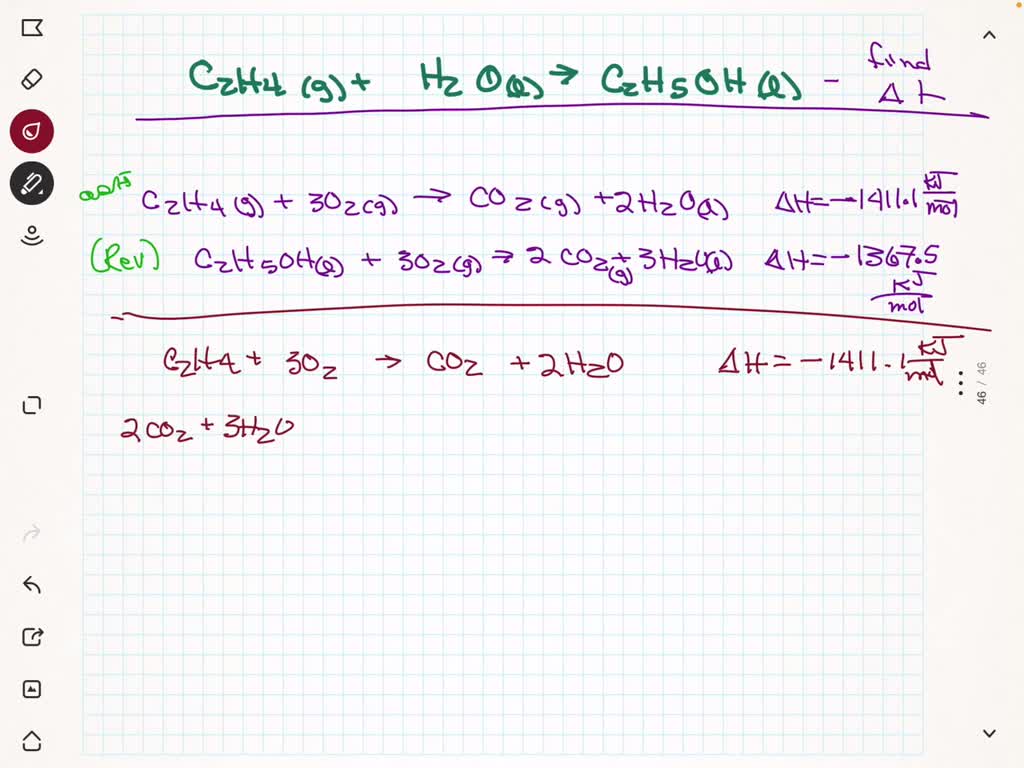 C2H4 (g) + H2O(l) → C2H5OH (l) - find ΔH
C2H4(g) + 3O2(g) → CO2(g) + 2H2O(l) ΔH = -1411.1 kJ/mol
(Rev) C2H5OH(l) + 3O2(g) → 2CO2(g) + 3H2O(l) ΔH = -1367.5 kJ/mol
C2H4 + 3O2 → CO2 + 2H2O ΔH = -1411.1 kJ/mol
2CO2 + 3H2O
46 / 46